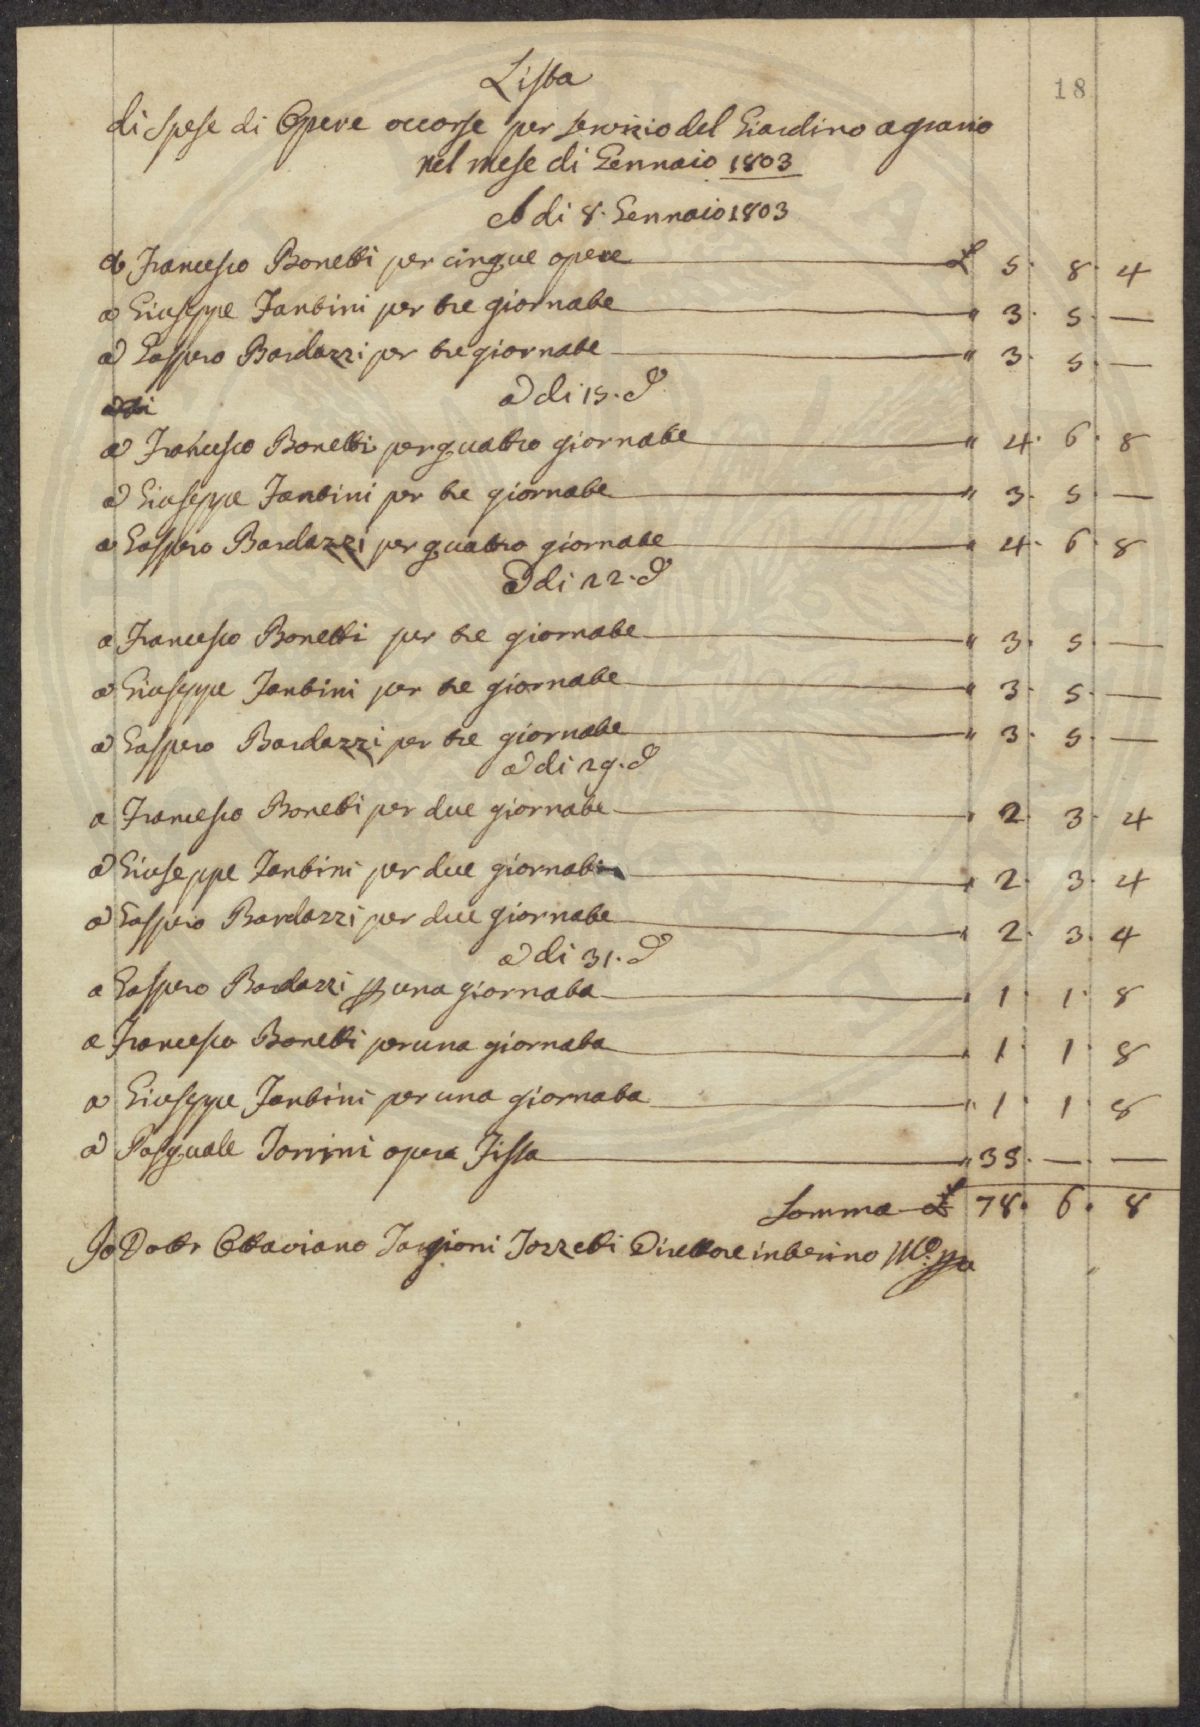 18
Lista
di Spese di Opere occorse per servizio del Giardino agrario
nel mese di Gennaio 1803
A di 8. Gennaio 1803
a Francesco Bonetti per cinque opere £ 5. 8. 4
a Giuseppe Fantini per tre giornate " 3. 5. —
a Gaspero Bardazzi per tre giornate " 3. 5. —
a di 15. d
a Francesco Bonetti per quattro giornate " 4. 6. 8
a Giuseppe Fantini per tre giornate " 3. 5. —
a Gaspero Bardazzi per quattro giornate " 4. 6. 8
a di 22. d
a Francesco Bonetti per tre giornate " 3. 5. —
a Giuseppe Fantini per tre giornate " 3. 5. —
a Gaspero Bardazzi per tre giornate " 3. 5. —
a di 29. d
a Francesco Bonetti per due giornate " 2. 3. 4
a Giuseppe Fantini per due giornate " 2. 3. 4
a Gaspero Bardazzi per due giornate " 2. 3. 4
a di 31. d
a Gaspero Bardazzi p una giornata " 1. 1. 8
a Francesco Bonetti per una giornata " 1. 1. 8
a Giuseppe Fantini per una giornata " 1. 1. 8
a Pasquale Torrini opera Fissa " 35. — . —
Somma £ 78. 6. 8
Io Dottr Ottaviano Targioni Tozzetti Direttore interino Mo. ppa